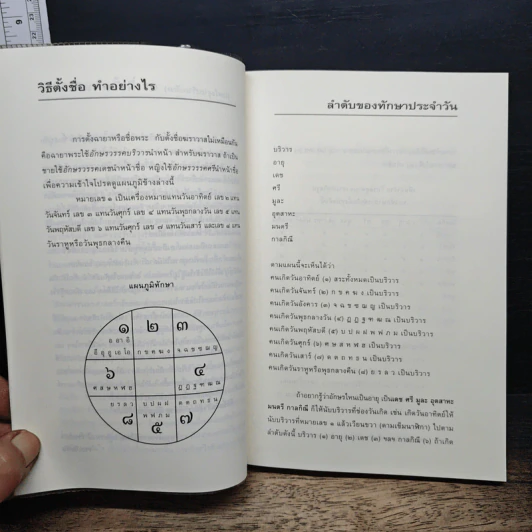 วิธีตั้งชื่อ ทำอย่างไร
การตั้งฉายาหรือชื่อพระ กับตั้งชื่อฆราวาสไม่เหมือนกัน
คือฉายาพระใช้อักษรวรรคบริวารนำหน้า สำหรับฆราวาส ถ้าเป็น
ชายใช้อักษรวรรคเดชนำหน้าชื่อ หญิงใช้อักษรวรรคศรีนำหน้าชื่อ
เพื่อความเข้าใจโปรดดูแผนภูมิข้างล่างนี้
หมายเลข ๑ เป็นเครื่องหมายแทนวันอาทิตย์ เลข ๒ แทน
วันจันทร์ เลข ๓ แทนวันอังคาร เลข ๔ แทนวันพุธกลางวัน เลข ๕ แทน
วันพฤหัสบดี เลข ๖ แทนวันศุกร์ เลข ๗ แทนวันเสาร์ และเลข ๘ แทน
วันราหูหรือวันพุธกลางคืน
แผนภูมิทักษา
๑ ๒ ๓
อ อา อิ
อี อุ อู เอ โอ ก ข ค ฆ ง จ ฉ ช ซ ฌ ญ
๖ ๔
ศ ษ ส ห ฬ ฮ ฎ ฏ ฐ ฑ ฒ ณ
ย ร ล ว บ ป ผ ฝ ด ต ถ ท ธ น
พ ฟ ภ ม
๘ ๕ ๗
ลำดับของทักษาประจำวัน
บริวาร
อายุ
เดช
ศรี
มูละ
อุตสาหะ
มนตรี
กาลกิณี
ตามแผนนี้จะเห็นได้ว่า
คนเกิดวันอาทิตย์ (๑) สระทั้งหมดเป็นบริวาร
คนเกิดวันจันทร์ (๒) ก ข ค ฆ ง เป็นบริวาร
คนเกิดวันอังคาร (๓) จ ฉ ช ซ ฌ ญ เป็นบริวาร
คนเกิดวันพุธกลางวัน (๔) ฎ ฏ ฐ ฑ ฒ ณ เป็นบริวาร
คนเกิดวันพฤหัสบดี (๕) บ ป ผ ฝ พ ฟ ภ ม เป็นบริวาร
คนเกิดวันศุกร์ (๖) ศ ษ ส ห ฬ ฮ เป็นบริวาร
คนเกิดวันเสาร์ (๗) ด ต ถ ท ธ น เป็นบริวาร
คนเกิดวันราหูหรือพุธกลางคืน (๘) ย ร ล ว เป็นบริวาร
ถ้าอยากรู้ว่าอักษรไหนเป็นอายุ เป็นเดช ศรี มูละ อุตสาหะ
มนตรี กาลกิณี ก็ให้นับบริวารที่ช่องวันเกิด เช่น เกิดวันอาทิตย์ให้
นับบริวารที่หมายเลข ๑ แล้วเวียนขวา (ตามเข็มนาฬิกา) ไปตาม
ลำดับดังนี้ บริวาร (๑) อายุ (๒) เดช (๓) ฯลฯ กาลกิณี (๖) ถ้าเกิด